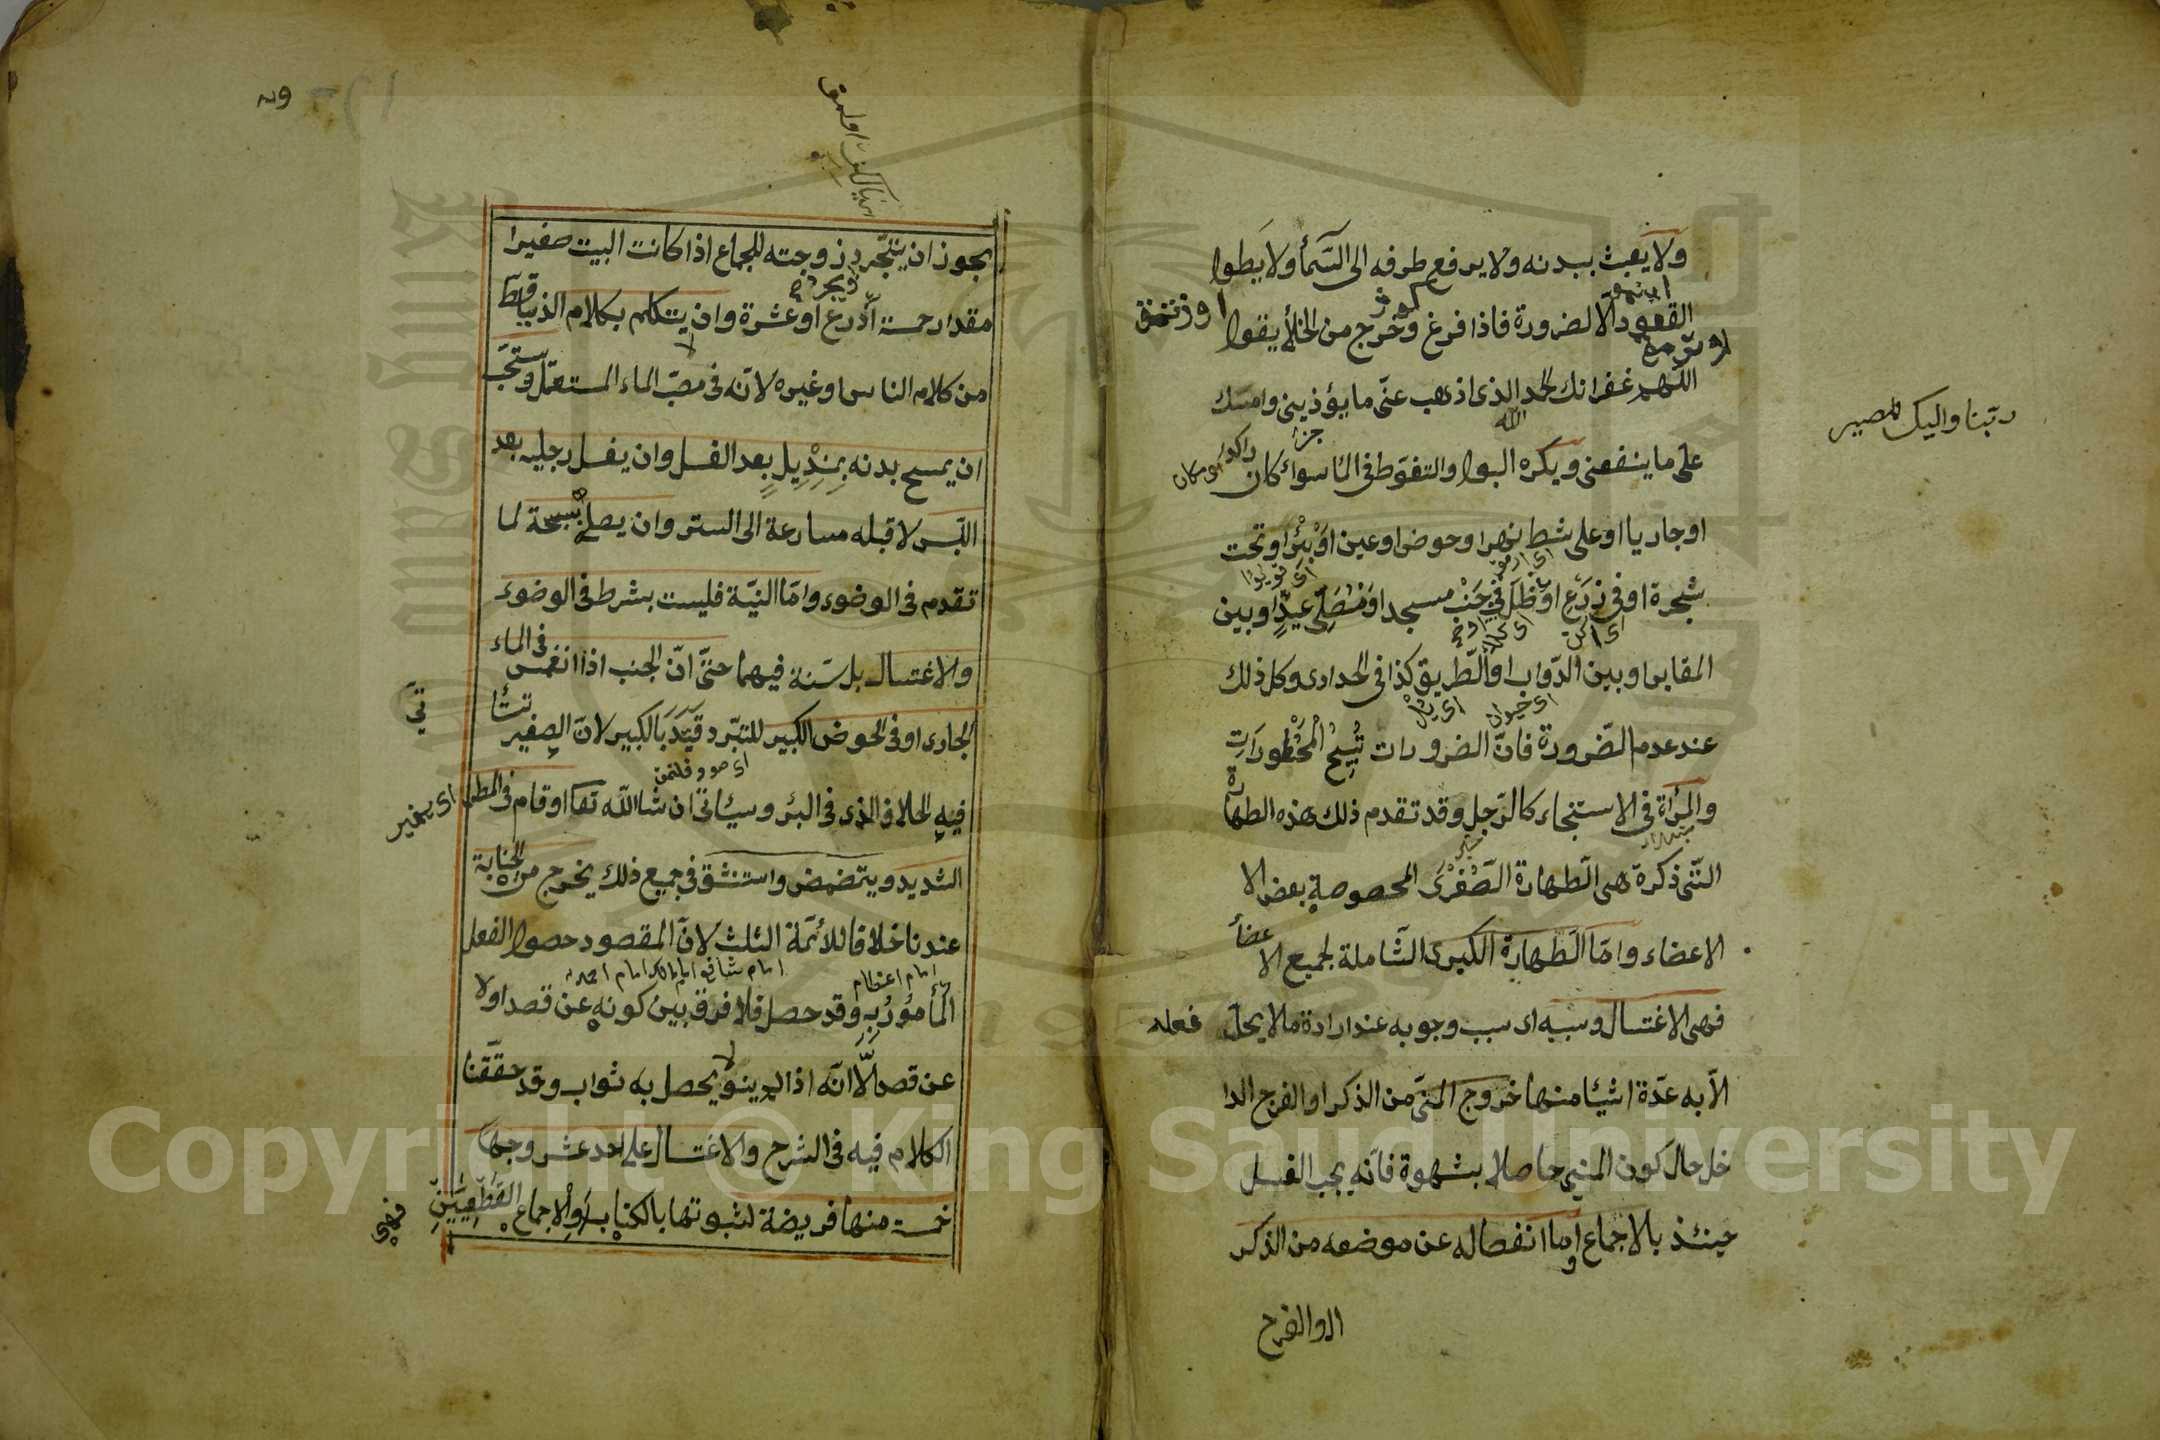 ولا يعبث ببدنه ولا يرفع طرفه الى السمأ ولا يطوا
القعود الا لضرورة فاذا فرغ وخرج من الخلأ يقوا
اللهم غفرانك الحمد الذى اذهب عنى ما يؤذينى وامسك
الله
ربنا واليك المصير
على ما ينفعنى ويكره البوا والتغوط فى المأ سواء كان راكد
او جاريا او على شط نهر او حوض او عين او بئر او تحت
شجرة او فى زرع او ظل فى جنب مسجد او مصلى عيد او بين
المقابر او بين الدواب او الطريق كذا فى الحدادى وكل ذلك
اى حيوان
عند عدم الضرورة فان الضرورات تبيح المحظورات
والمرأة فى الاستنجاء كالرجل وقد تقدم ذلك هذه الطهارة
التى ذكره هى الطهارة الصغرى المخصوصة بعض الا
الاعضاء واما الطهارة الكبرى الشاملة لجميع الاعضأ
فهى الاغتسال وسببه اى سبب وجوبه عند ارادة ما لا يحل فعله
الا به عدة اشيئا منها خروج المنى من الذكر او الفرج الدا
خل حال كون المنى حاصلا بشهوة فانه يجب الغسل
حينئذ بالاجماع واما انفصاله عن موضعه من الذكر
او الفرج
يجوز ان يتجرد زوجته للجماع اذا كانت البيت صغيرا
مقدار خمسة أذرع او عشرة وان يتكلم بكلام الدنيا قط
من كلام الناس او غيره لانه فى مصب الماء المستعمل ويستحب
ان يمسح بدنه بمنديل بعد الغسل وان يغسل رجليه بعد
اللبس لا قبله مسارعة الى الستر وان يصلى بسبحة لما
تقدم فى الوضوء واما النية فليست بشرط فى الوضوء
والاغتسال بل سنة فيهما حتى ان الجنب اذا انغمس فى الماء
الجارى او فى الحوض الكبير للتبرد قيد بالكبير لان الصغير
فيه الخلاف الذى فى البئر وسيأتى ان شا الله تعا او قام فى المطر
اى يغير
الشديد ويتمضمض واستنشق فى جميع ذلك يخرج من الجنابة
عندنا خلافا للأئمة الثلث لان المقصود حصوا الفعل
امام شافى امام مالك امام احمد
امام اعظم
المأمور به وقد حصل فلا فرق بين كونه عن قصد اولا
عن قص الا انه اذا لم ينو لا يحصل به ثواب وقد حققنا
الكلام فيه فى الشرح والاغتسال على احد عشر وجها
خمسة منها فريضة لثبوتها بالكتاب والاجماع القطعيين
فهى